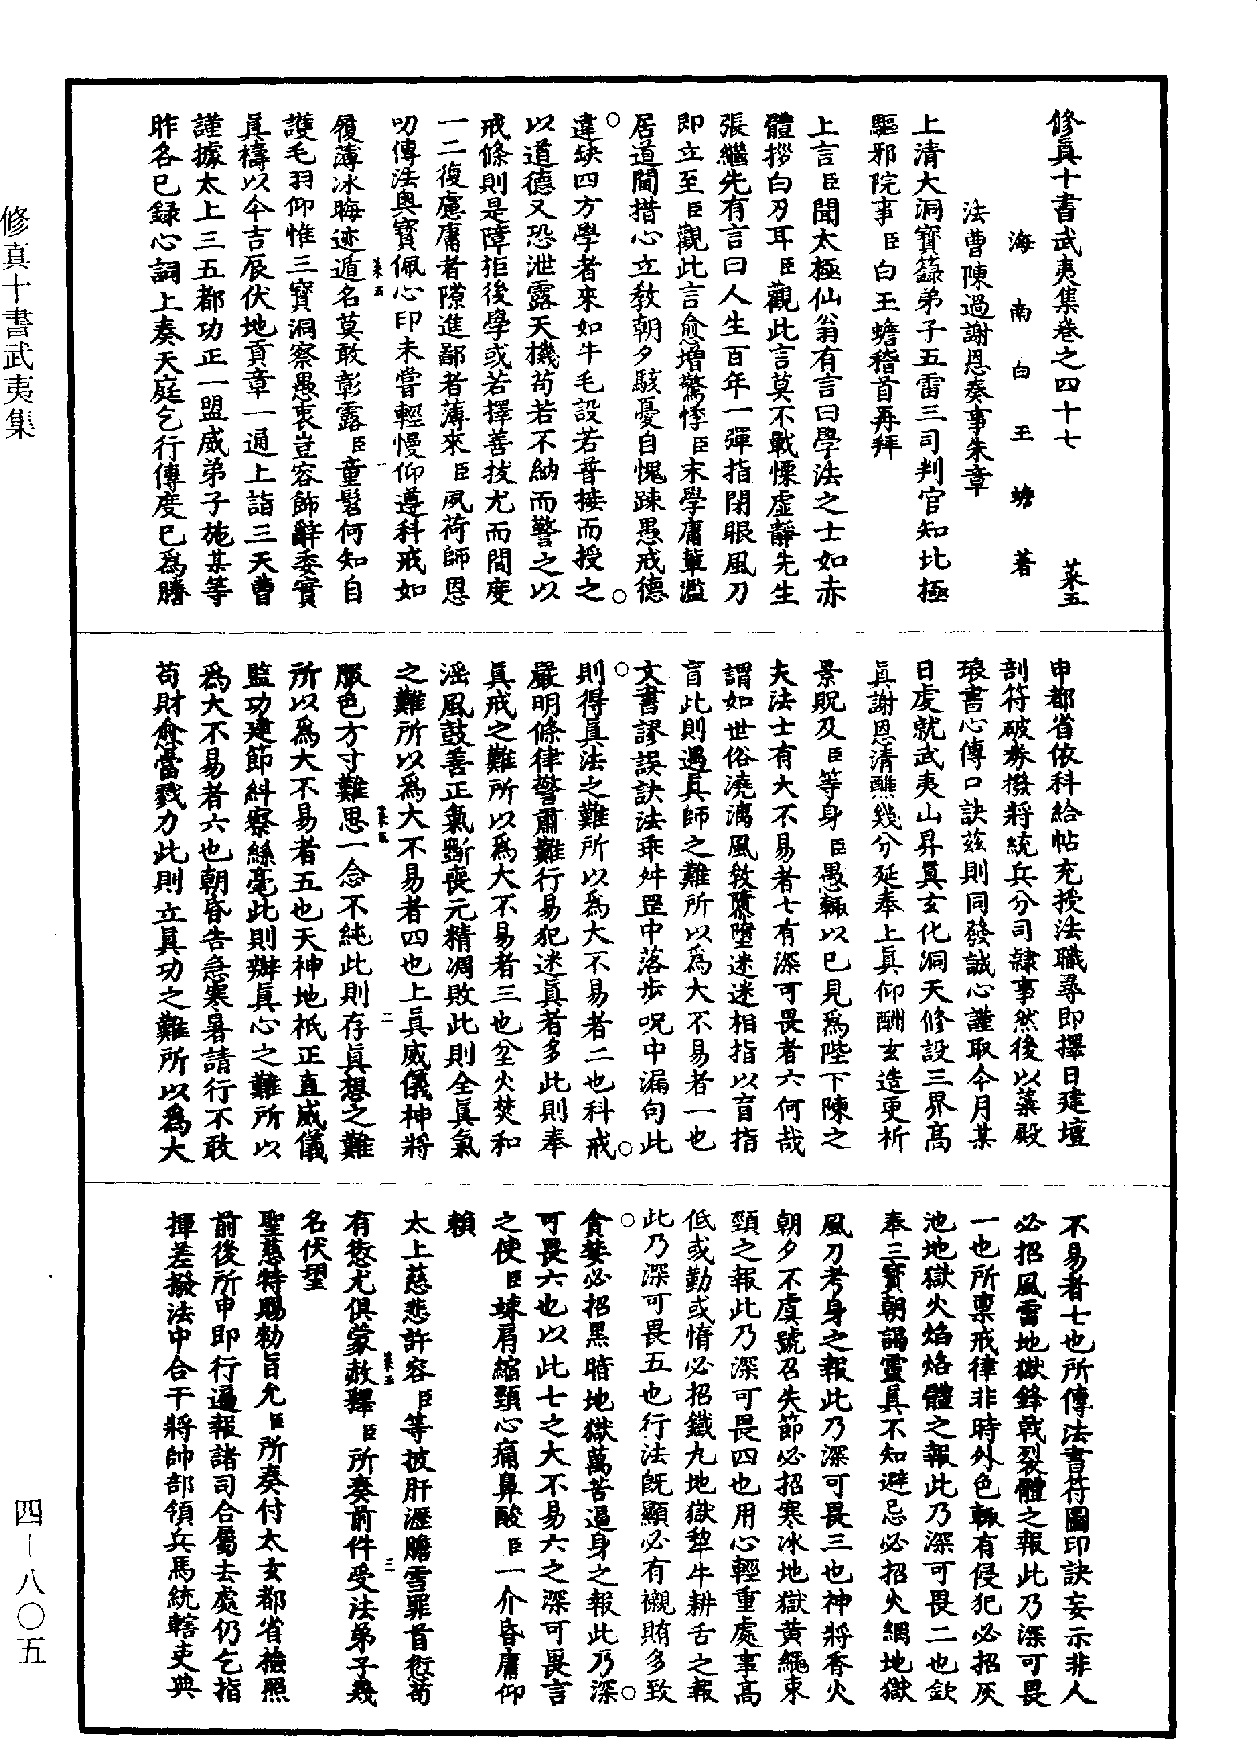 修真十書武夷集卷之四十七　菜五
海南白玉蟾著
法曹陳過謝恩奏事朱章
上清大洞寶籙弟子五雷三司判官知北極
驅邪院事臣白玉蟾稽首再拜
上言臣聞太極仙翁有言曰學法之士如赤
體拶白刃耳臣觀此言莫不戰慄虛靜先生
張繼先有言曰人生百年一彈指閉眼風刀
即立至臣觀此言愈增驚悸臣末學庸輩濫
居道閫措心立教朝夕駭憂自愧踈愚戒德
違缺四方學者來如牛毛設若普接而授之
以道德又恐泄露天機苟若不納而警之以
戒條則是障拒後學或若擇善拔尤而間度
一二復慮庸者隙進鄙者薄來臣夙荷師恩
叨傳法奧寶佩心印未嘗輕慢仰遵科戒如
菜五　一
履薄冰晦迹遁名莫敢彰露臣童髫何知自
護毛羽仰惟三寶洞察愚衷豈容飾辭委實
真禱以今吉辰伏地貢章一通上詣三天曹
謹據太上三五都功正一盟威弟子施某等
昨各已錄心詞上奏天庭乞行傳度已為謄
申都省依科給帖充授法職尋即擇日建壇
剖符破券撥將統兵分司隸事然後以蘂殿
琅書心傳口訣茲則同發誠心謹取今月某
日虔就武夷山昇真玄化洞天修設三界高
真謝恩清醮幾分延奉上真仰酬玄造更祈
景貺及臣等身臣愚輒以已見為陛下陳之
夫法士有大不易者七有深可畏者六何哉
謂如世俗澆漓風敘隳墮迷迷相指以盲指
盲此則遇真師之難所以為大不易者一也
文書謬誤訣法乖舛罡中落步呪中漏句此
則得真法之難所以為大不易者二也科戒
嚴明條律警肅難行易犯迷真者多此則奉
真戒之難所以為大不易者三也坌火焚和
滛風鼓善正氣斲喪元精凋敗此則全真氣
之難所以為大不易者四也上真威儀神將
菜五　二
服色方寸難思一念不純此則存真想之難
所以為大不易者五也天神地祇正直威儀
監功建節糾察絲毫此則辦真心之難所以
為大不易者六也朝昏告急寒暑請行不敢
苟財愈當戮力此則立真功之難所以為大
不易者七也所傳法書符圖印訣妄示非人
必招風雷地獄鋒戟裂體之報此乃深可畏
一也所稟戒律非時外色輒有侵犯必招灰
池地獄火焰烙體之報此乃深可畏二也欽
奉三寶朝謁靈真不知避忌必招火網地獄
風刀考身之報此乃深可畏三也神將香火
朝夕不虔號召失節必招寒冰地獄黃繩束
頸之報此乃深可畏四也用心輕重處事高
低或勤或惰必招鐵丸地獄犂牛耕舌之報
此乃深可畏五也行法既顯必有襯賄多致
貪婪必招黑暗地獄萬苦逼身之報此乃深
可畏六也以此七之大不易六之深可畏言
之使臣竦肩縮頸心痛鼻酸臣一介昏庸仰
賴
太上慈悲許容臣等披肝瀝膽雪罪首愆苟
菜五　三
有愆尤俱蒙赦釋臣所奏前件受法弟子幾
名伏望
聖慈特賜勅旨允臣所奏付太玄都省檢照
前後所申即行遍報諸司合屬去處仍乞指
揮差撥法中合干將帥部領兵馬統轄吏典
修真十書武夷集
四—八〇五